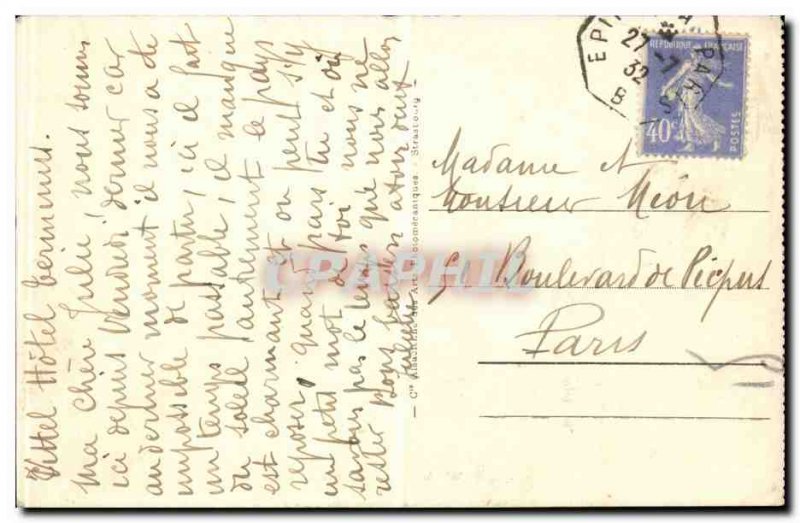 Vittel Hôtel terminus.
Ma chère Julie, nous sommes
ici depuis Vendredi dernier car
au dernier moment il nous a été
impossible de partir, ici il fait
un temps passable, il manque
du soleil, autrement le pays
est charmant et on peut s'y
reposer, quand pars tu et où
un petit mot de toi nous ne
savons pas le temps que nous allons
rester Bons baisers à tous deux
Cie Alsacienne des Arts Photomécaniques - Strasbourg
EPIN A PARIS
27 -7
32
B
REPUBLIQUE FRANÇAISE
40c
POSTES
Madame et
Monsieur Méon
Boulevard de Picpus
Paris
CPAPHIL